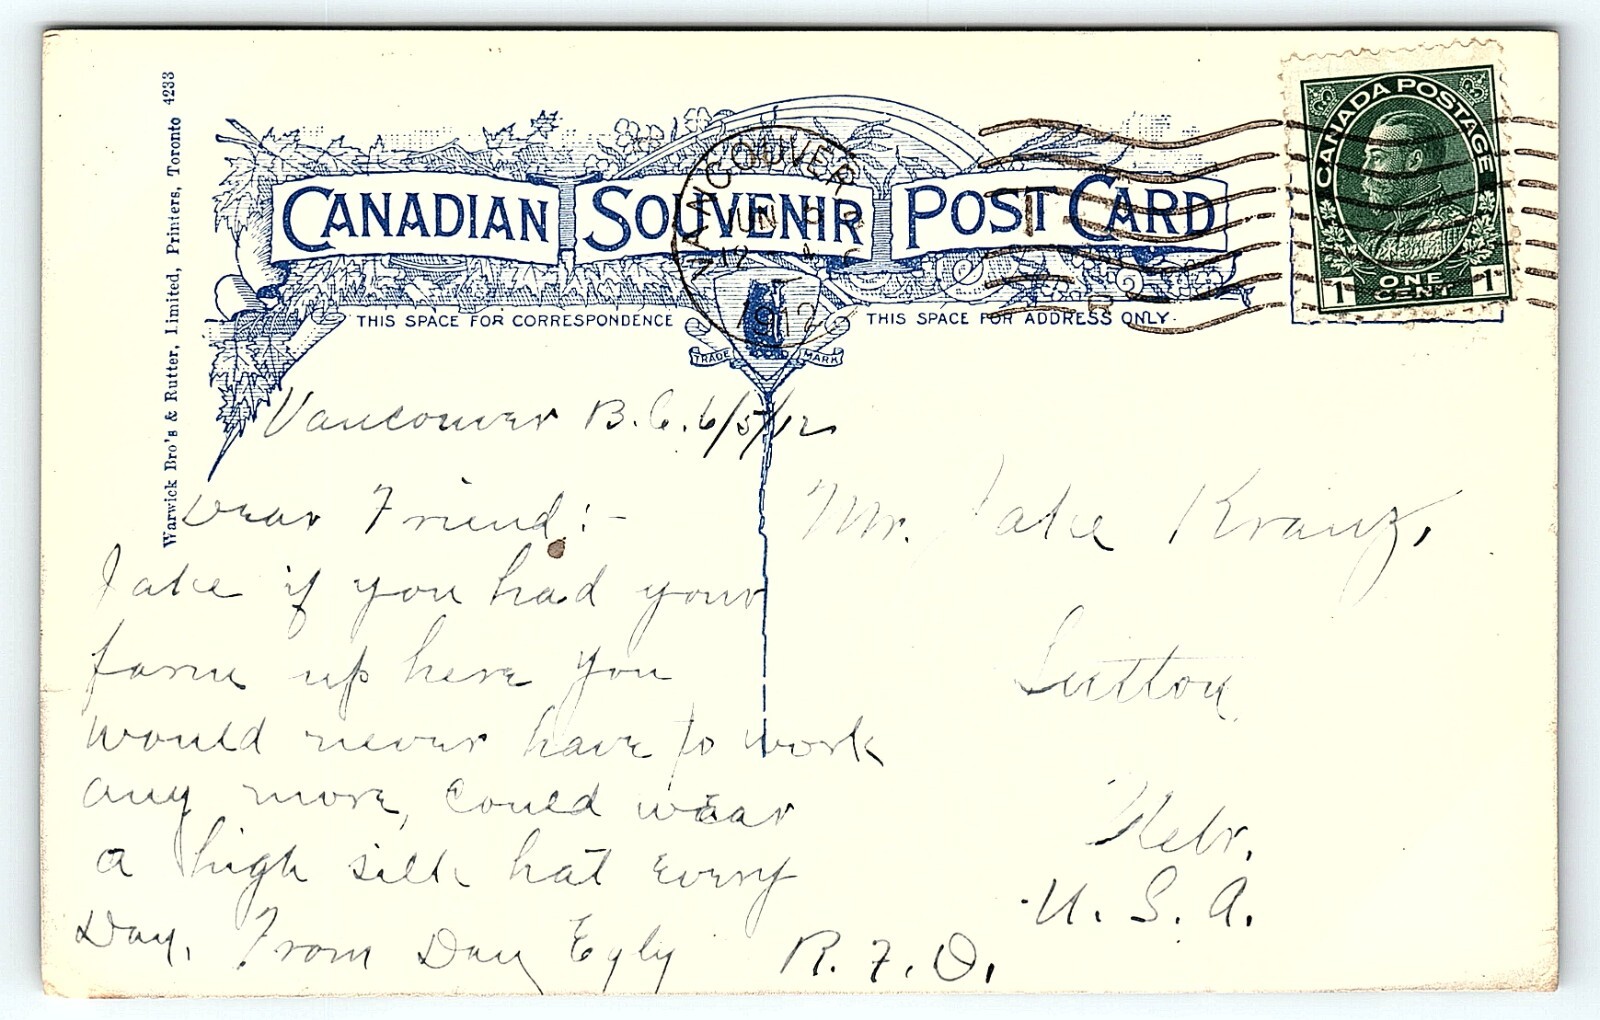 Warwick Bro's & Rutter, Limited, Printers, Toronto 4233
CANADIAN SOUVENIR POST CARD
CANADA POSTAGE
1 ONE CENT 1
VANCOUVER
JUN
12
1912
THIS SPACE FOR CORRESPONDENCE
THIS SPACE FOR ADDRESS ONLY
TRADE MARK
Vancouver B.C. 6/5/12
Dear Friend:-
Jake if you had your
farm up here you
would never have to work
any more, could wear
a high silk hat every
Day. From Dan Egly
Mr. Jake Kranz,
Sutton
Nebr.
U. S. A.
R. F. D.